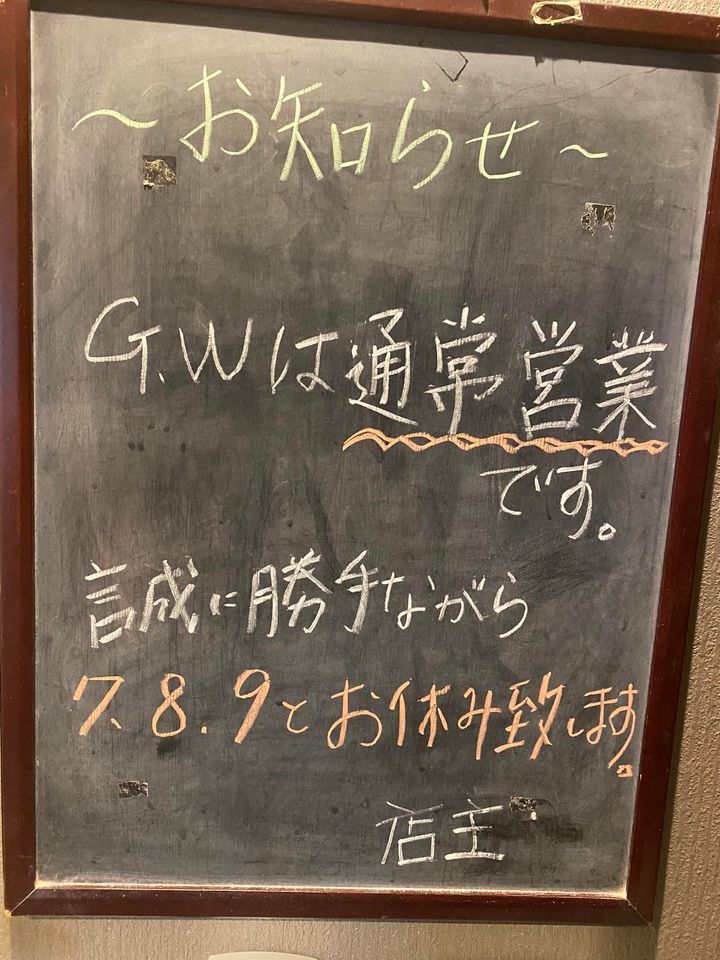 ～お知らせ～
G.Wは通常営業
です。
誠に勝手ながら
7.8.9とお休み致します。
店主